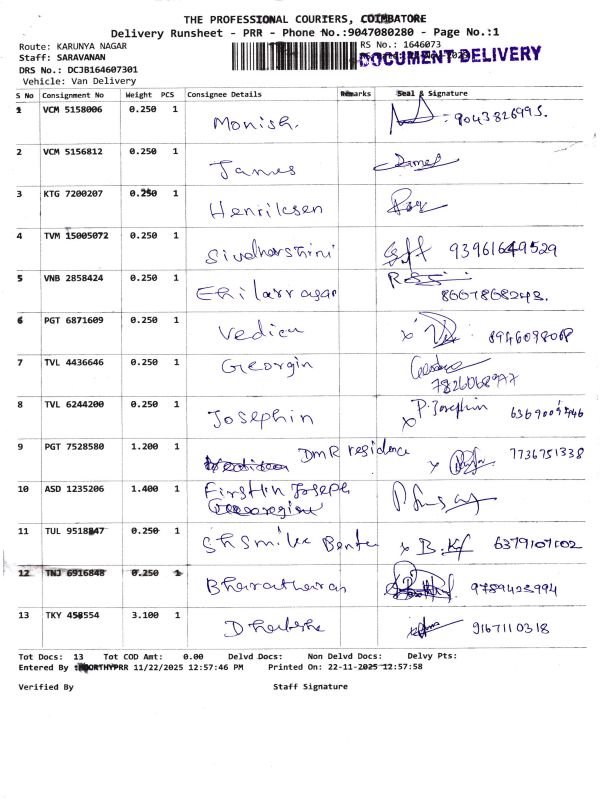 THE PROFESSIONAL COURIERS, COIMBATORE
Delivery Runsheet - PRR - Phone No.:9047080280 - Page No.:1
Route: KARUNYA NAGAR
RS No.: 1646073
Staff: SARAVANAN
DOCUMENT DELIVERY
DRS No.: DCJB164607301
Vehicle: Van Delivery
S No Consignment No Weight PCS Consignee Details Remarks Seal & Signature
1 VCM 5158006 0.250 1 Monish. 9043826995.
2 VCM 5156812 0.250 1 James James
3 KTG 7200207 0.250 1 Henriksen Roy
4 TVM 15005072 0.250 1 Sivadharshini 93961649529
5 VNB 2858424 0.250 1 Ehilarragan 8667868243.
6 PGT 6871609 0.250 1 Vedica x 8946098068
7 TVL 4436646 0.250 1 Georgin
8 TVL 6244200 0.250 1 Josephin x P.Josephin
9 PGT 7528580 1.200 1 DMR residence x 7736751338
10 ASD 1235206 1.400 1 Firstlin Joseph
11 TUL 9518847 0.250 1 x 6379107102
12 TNJ 6916848 0.250 1 9789423994
13 TKY 458554 3.100 1 9167110318
Tot Docs: 13 Tot COD Amt: 0.00 Delvd Docs: Non Delvd Docs: Delvy Pts:
Entered By : MOORTHYPRR 11/22/2025 12:57:46 PM Printed On: 22-11-2025 12:57:58
Verified By Staff Signature